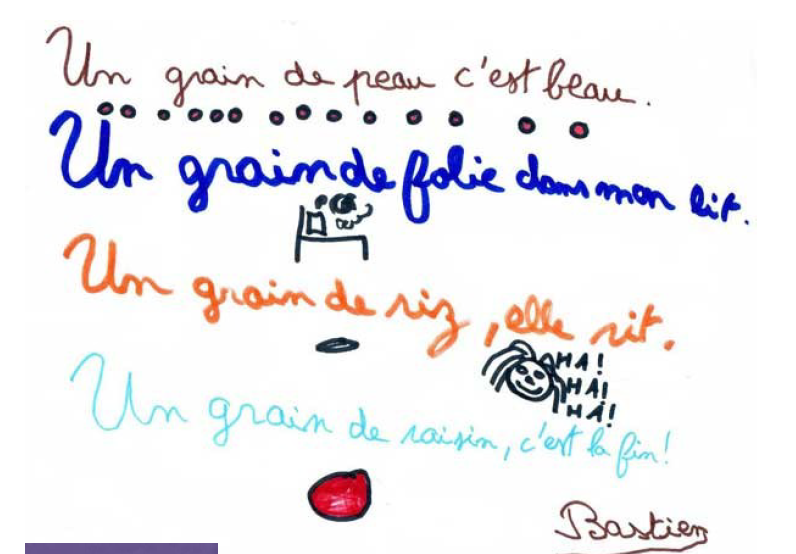 Un grain de peau c'est beau.
Un grain de folie dans mon lit.
Un grain de riz, elle rit.
HA!
HA!
HA!
Un grain de raisin, c'est la fin!
Bastien